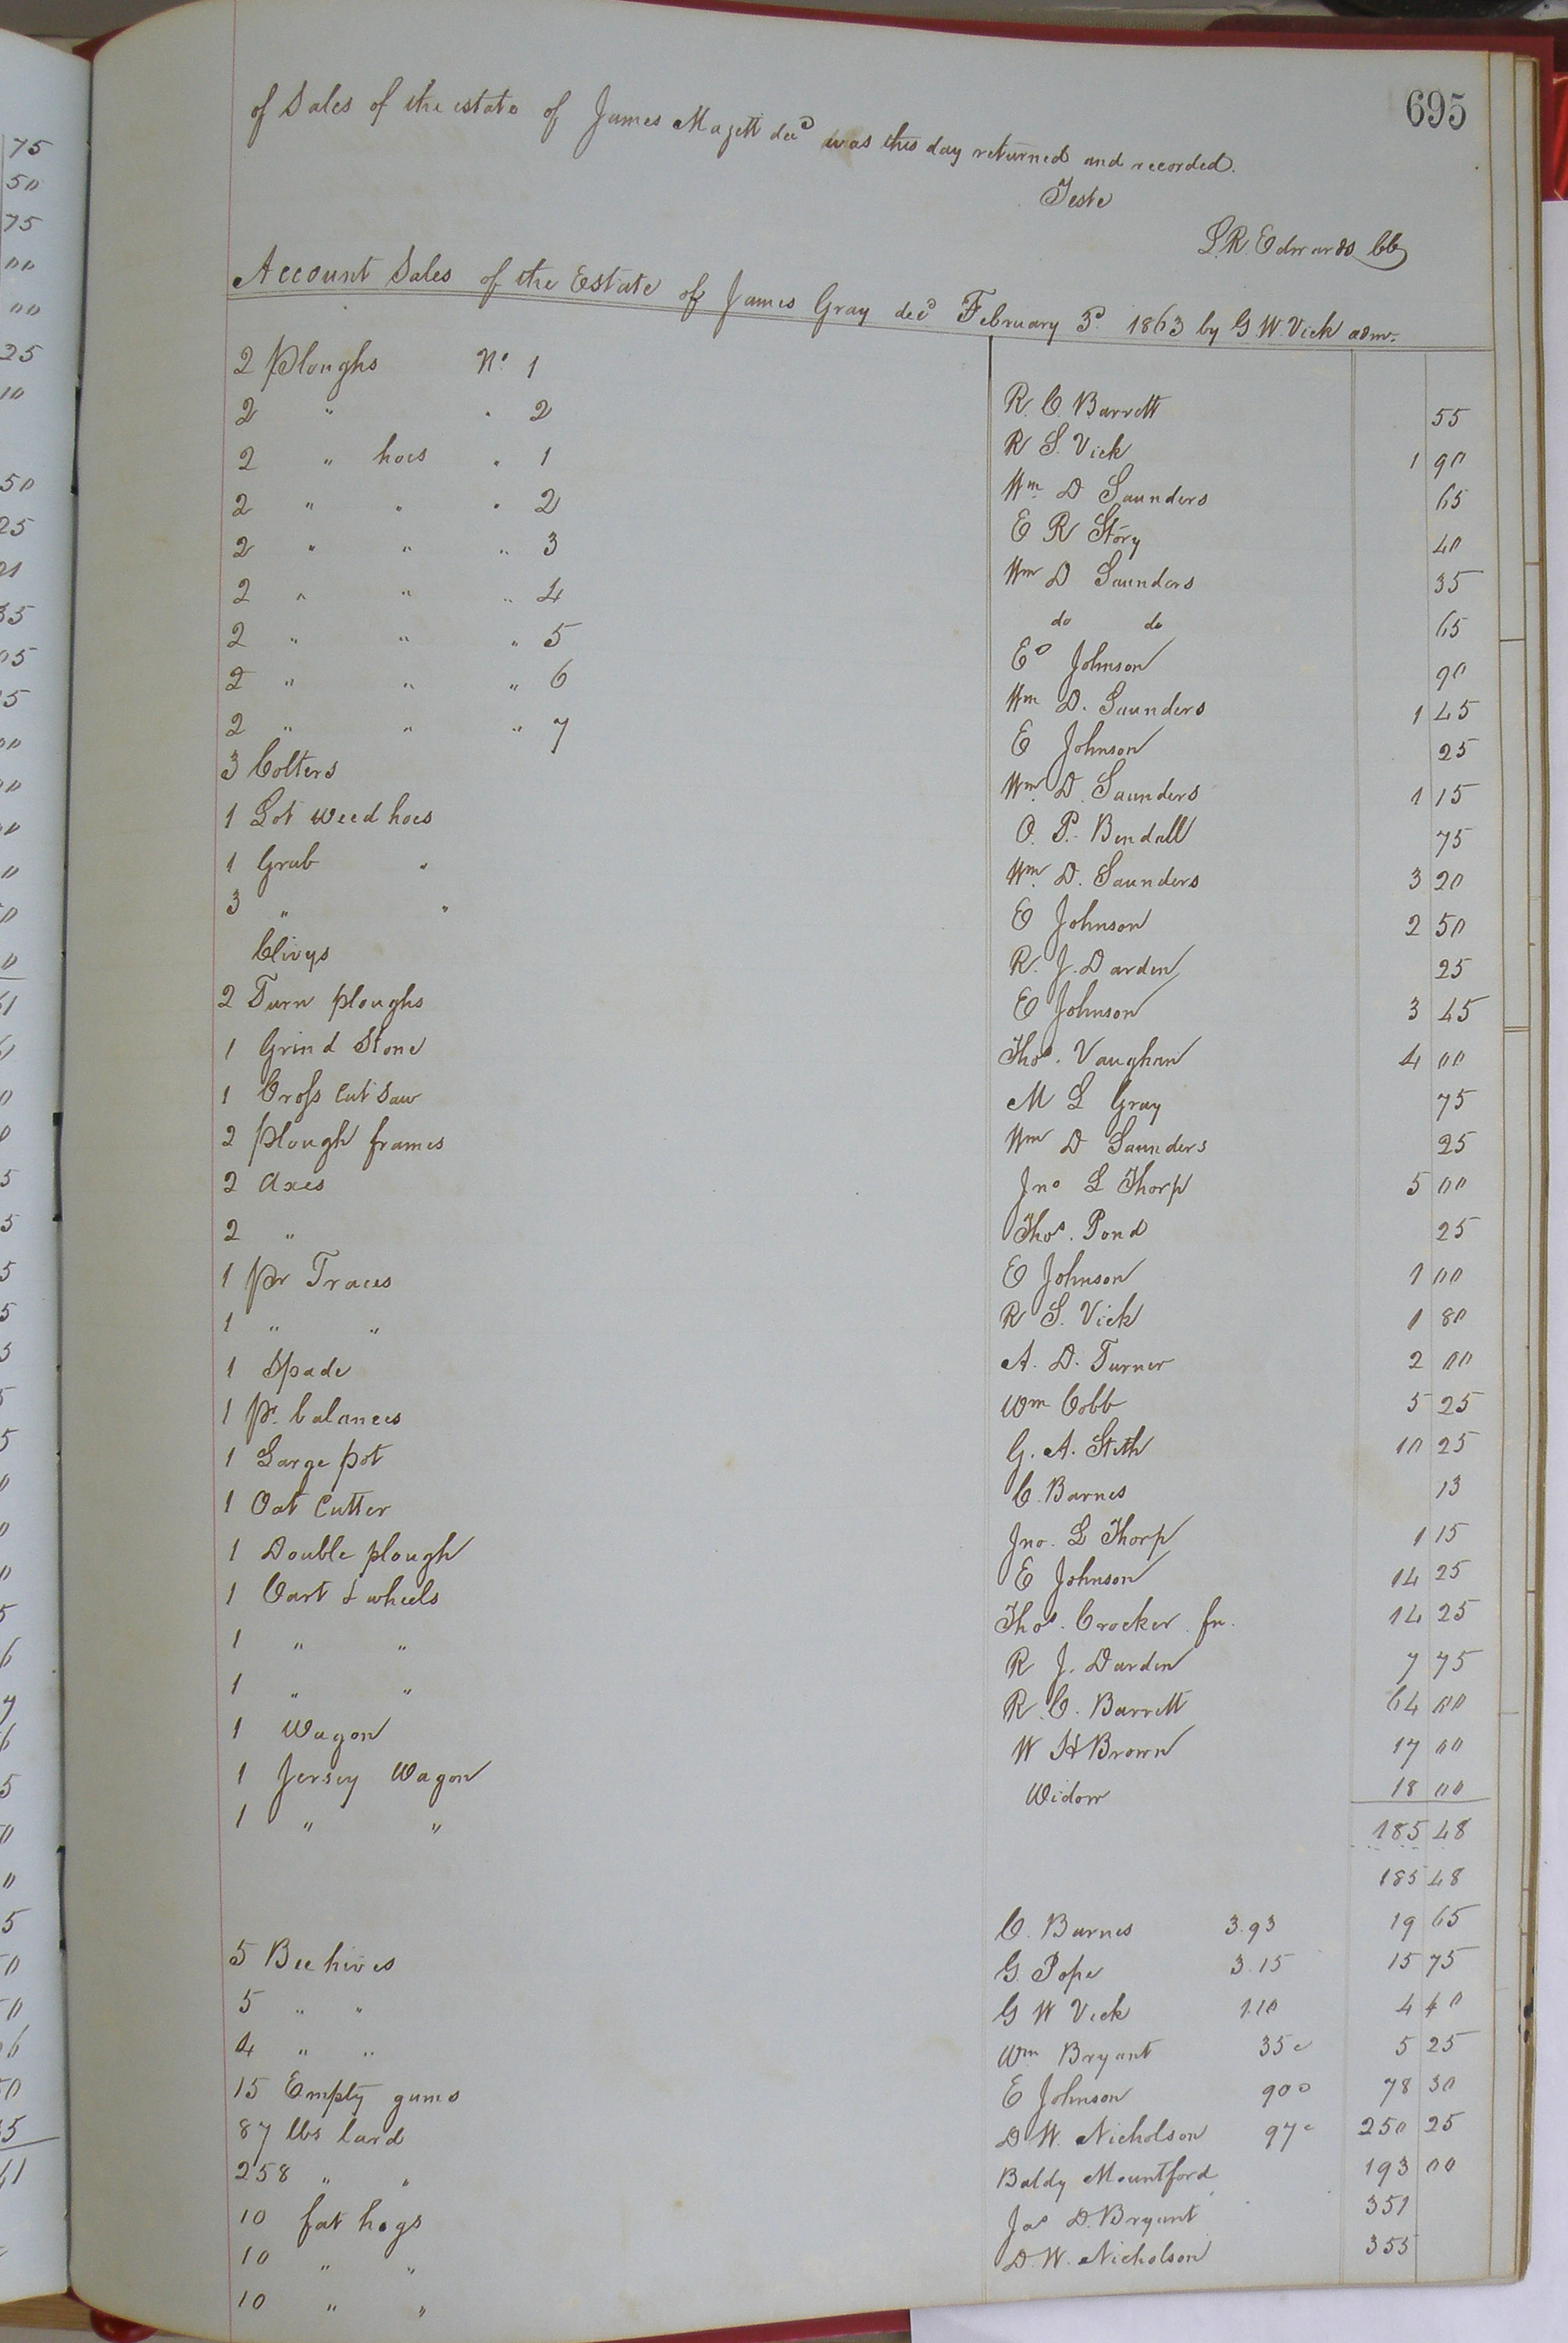 695
of Sales of the estate of James Magett decd was this day returned and recorded.
Teste
L.R. Edwards CC
Account Sales of the Estate of James Gray decd February 3d 1863 by G W. Vick adm.
2 Ploughs No 1 R. C. Barrett 55
2 " " 2 R S. Vick 1 90
2 " hoes " 1 Wm D Saunders 65
2 " " " 2 E R Story 40
2 " " " 3 Wm D Saunders 35
2 " " " 4 do do 65
2 " " " 5 Ed Johnson 90
2 " " " 6 Wm D. Saunders 1 45
2 " " " 7 E Johnson 25
3 Colters Wm D. Saunders 1 15
1 Lot weed hoes O. P. Bendall 75
1 Grub " Wm D. Saunders 3 20
3 " " E Johnson 2 50
Clivys R. J. Darden 25
2 Turn ploughs E Johnson 3 45
1 Grind Stone Thos. Vaughan 4 00
1 Cross cut Saw M L Gray 75
2 Plough frames Wm D Saunders 25
2 Axes Jno L Thorp 5 00
2 " Thos. Pond 25
1 Pr Traces E Johnson 1 00
1 " " R S. Vick 1 80
1 Spade A. D. Turner 2 00
1 Pr. balances Wm Cobb 5 25
1 Large pot G. A. Stith 10 25
1 Oat Cutter C. Barnes 13
1 Double plough Jno. L Thorp 1 15
1 Cart & wheels E Johnson 14 25
1 " " Thos. Crocker jr. 14 25
1 " " R J. Darden 7 75
1 Wagon R. C. Barrett 64 00
1 Jersey Wagon W H Brown 17 00
1 " " Widow 18 00
185 48
185 48
5 Bee hives C. Barnes 3.93 19 65
5 " " G. Pope 3.15 15 75
4 " " G W Vick 1.10 4 40
15 Empty gums Wm Bryant 35c 5 25
87 lbs lard E Johnson 90c 78 30
258 " " D. W. Nicholson 97c 250 25
10 fat hogs Baldy Mountford 193 00
10 " " Jas D. Bryant 351
10 " " D. W. Nicholson 355